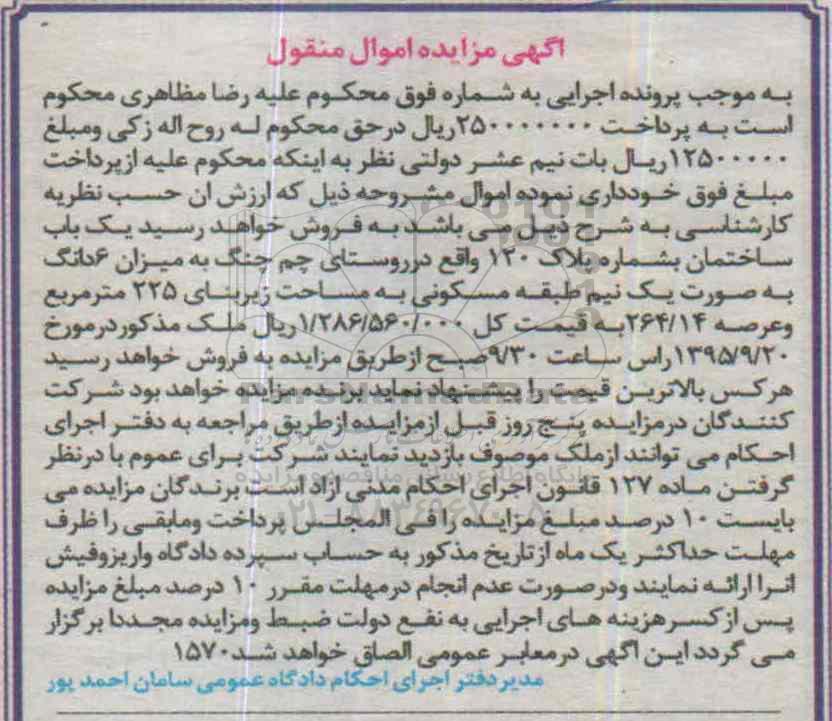 اگهی مزایده اموال منقول
به موجب پرونده اجرایی به شماره فوق محکوم علیه رضا مظاهری محکوم
است به پرداخت ۲۵۰۰۰۰۰۰۰ریال درحق محکوم له روح اله زکی ومبلغ
۱۲۵۰۰۰۰۰ریال بات نیم عشر دولتی نظر به اینکه محکوم علیه ازپرداخت
مبلغ فوق خودداری نموده اموال مشروحه ذیل که ارزش ان حسب نظریه
کارشناسی به شرح ذیل می باشد به فروش خواهد رسید یک باب
ساختمان بشماره پلاک ۱۲۰ واقع درروستای چم چنگ به میزان ۶دانگ
به صورت یک نیم طبقه مسکونی به مساحت زیربنای ۲۲۵ مترمربع
وعرصه ۲۶۴/۱۴به قیمت کل ۱/۲۸۶/۵۶۰/۰۰۰ریال ملک مذکوردرمورخ
۱۳۹۵/۹/۲۰راس ساعت ۹/۳۰صبح ازطریق مزایده به فروش خواهد رسید
هرکس بالاترین قیمت را پیشنهاد نماید برنده مزایده خواهد بود شرکت
کنندگان درمزایده پنج روز قبل ازمزایده ازطریق مراجعه به دفتر اجرای
احکام می توانند ازملک موصوف بازدید نمایند شرکت برای عموم با درنظر
گرفتن ماده ۱۲۷ قانون اجرای احکام مدنی ازاد است برندگان مزایده می
بایست ۱۰ درصد مبلغ مزایده را فی المجلس پرداخت ومابقی را ظرف
مهلت حداکثر یک ماه ازتاریخ مذکور به حساب سپرده دادگاه واریزوفیش
انرا ارائه نمایند ودرصورت عدم انجام درمهلت مقرر ۱۰ درصد مبلغ مزایده
پس ازکسرهزینه های اجرایی به نفع دولت ضبط ومزایده مجددا برگزار
می گردد این اگهی درمعابر عمومی الصاق خواهد شد۱۵۷۰
مدیردفتر اجرای احکام دادگاه عمومی سامان احمد پور